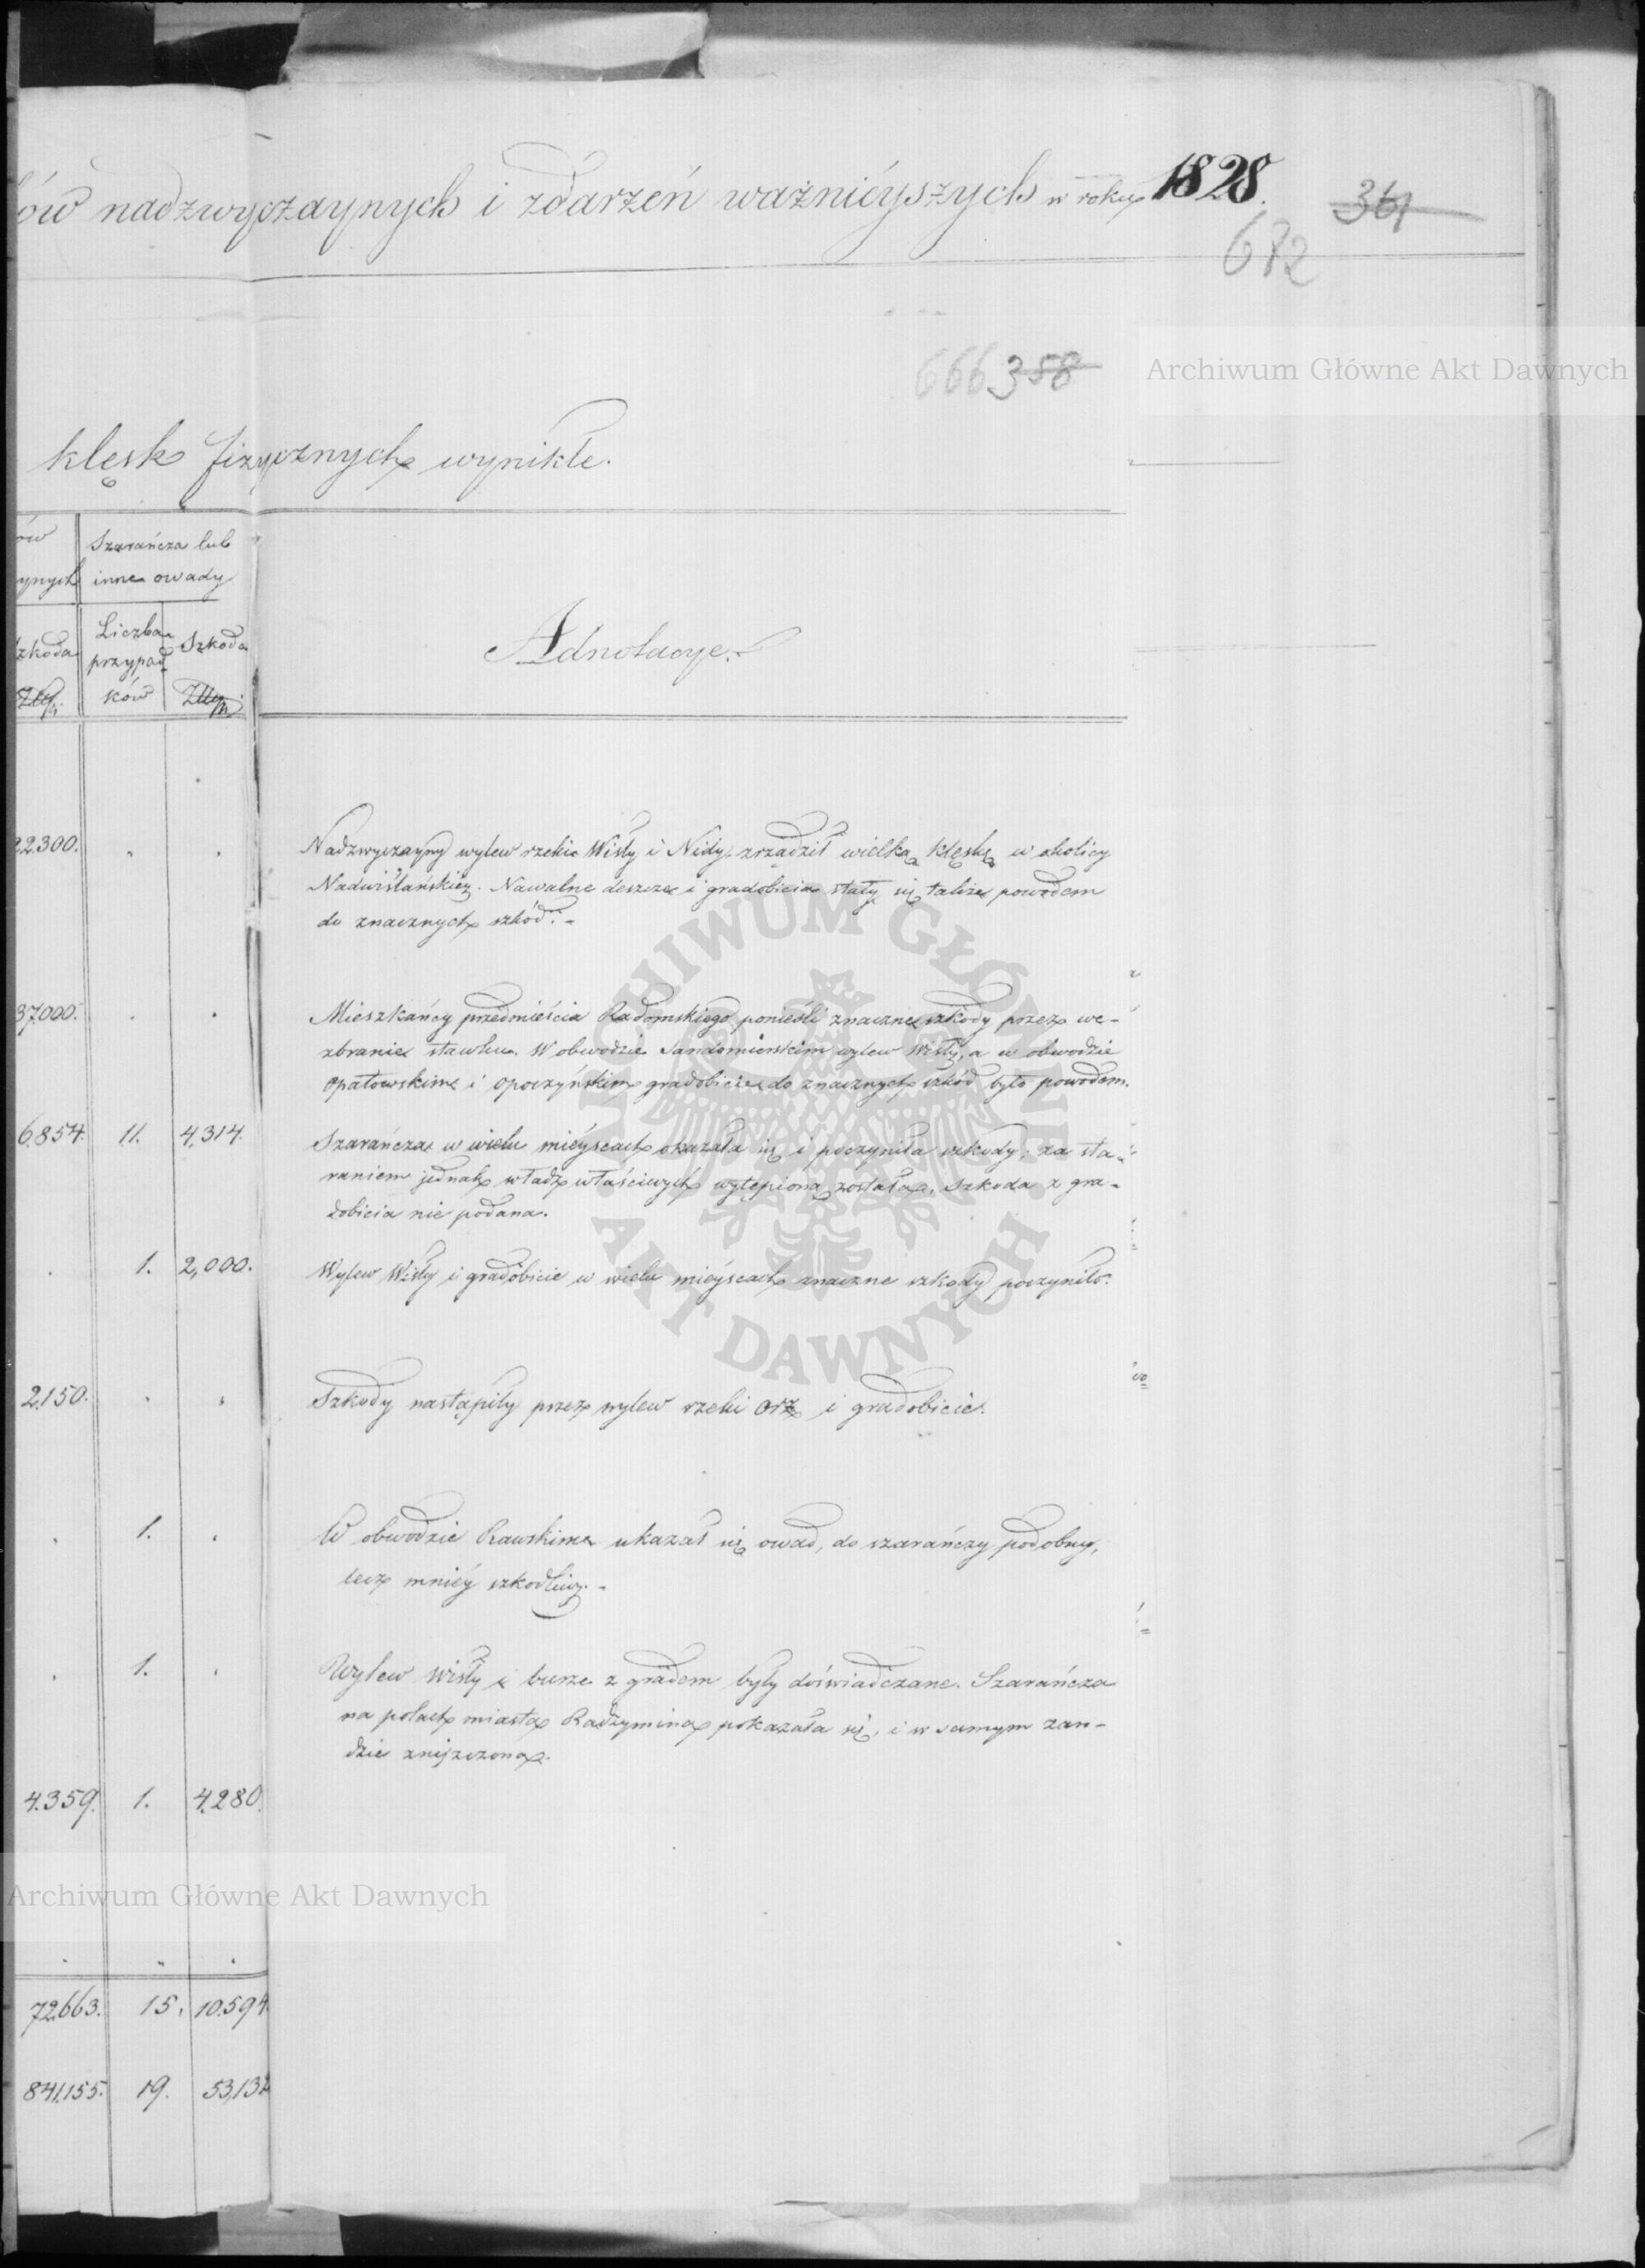 ów nadzwyczaynych i zdarzeń ważnieyszych w roku 1828.
361
672
666 358
Archiwum Główne Akt Dawnych
klęsk fizycznych wynikłe.
ów
ynych
Szarańcza lub
inne owady
zkoda
Złp.
Liczba
przypad
ków
Szkoda
Złp.
Adnotacye.
22.300. " .
Nadzwyczayny wylew rzeki Wisły i Nidy, zrządził wielką klęskę w okolicy
Nadwiślańskiéy. Nawalne deszcze i gradobicia stały się także powodem
do znacznych szkód.-
37.000. . .
Mieszkańcy przedmieścia Radomskiego ponieśli znaczne szkody przez we-
zbranie stawku. W obwodzie Sandomierskim wylew Wisły, a w obwodzie
Opatowskim i Opoczyńskim gradobicie do znacznych szkód było powodem.
6.854. 11. 4.314.
Szarańcza w wielu mieyscach okazała się i poczyniła szkody; za sta-
raniem jednak władz właściwych wytępioną została, szkoda z gra-
dobicia nie podana.
. 1. 2,000.
Wylew Wisły i gradobicie w wielu mieyscach znaczne szkody poczyniło.
2.150. . .
Szkody nastąpiły przez wylew rzeki Orz i gradobicie.
. 1. .
W obwodzie Rawskim ukazał się owad, do szarańczy podobny,
lecz mniéy szkodliwy.-
. 1. .
Wylew Wisły i burze z gradem były doświadczane. Szarańcza
na polach miasta Radzymina pokazała się, i w samym zaro-
dzie zniszczona.
4.359. 1. 4.280.
Archiwum Główne Akt Dawnych
. " .
72.663. 15. 10.594
841.155. 19. 53,132
ARCHIWUM GŁÓWNE
AKT DAWNYCH